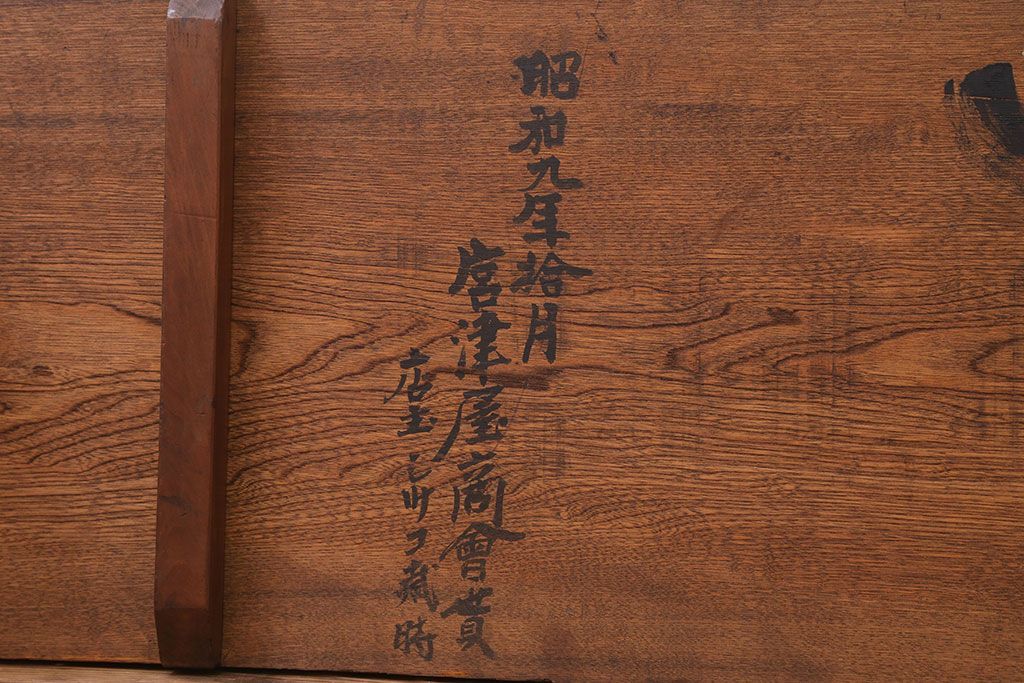 昭和九年拾月
唐津屋商會貰
店主 歳時